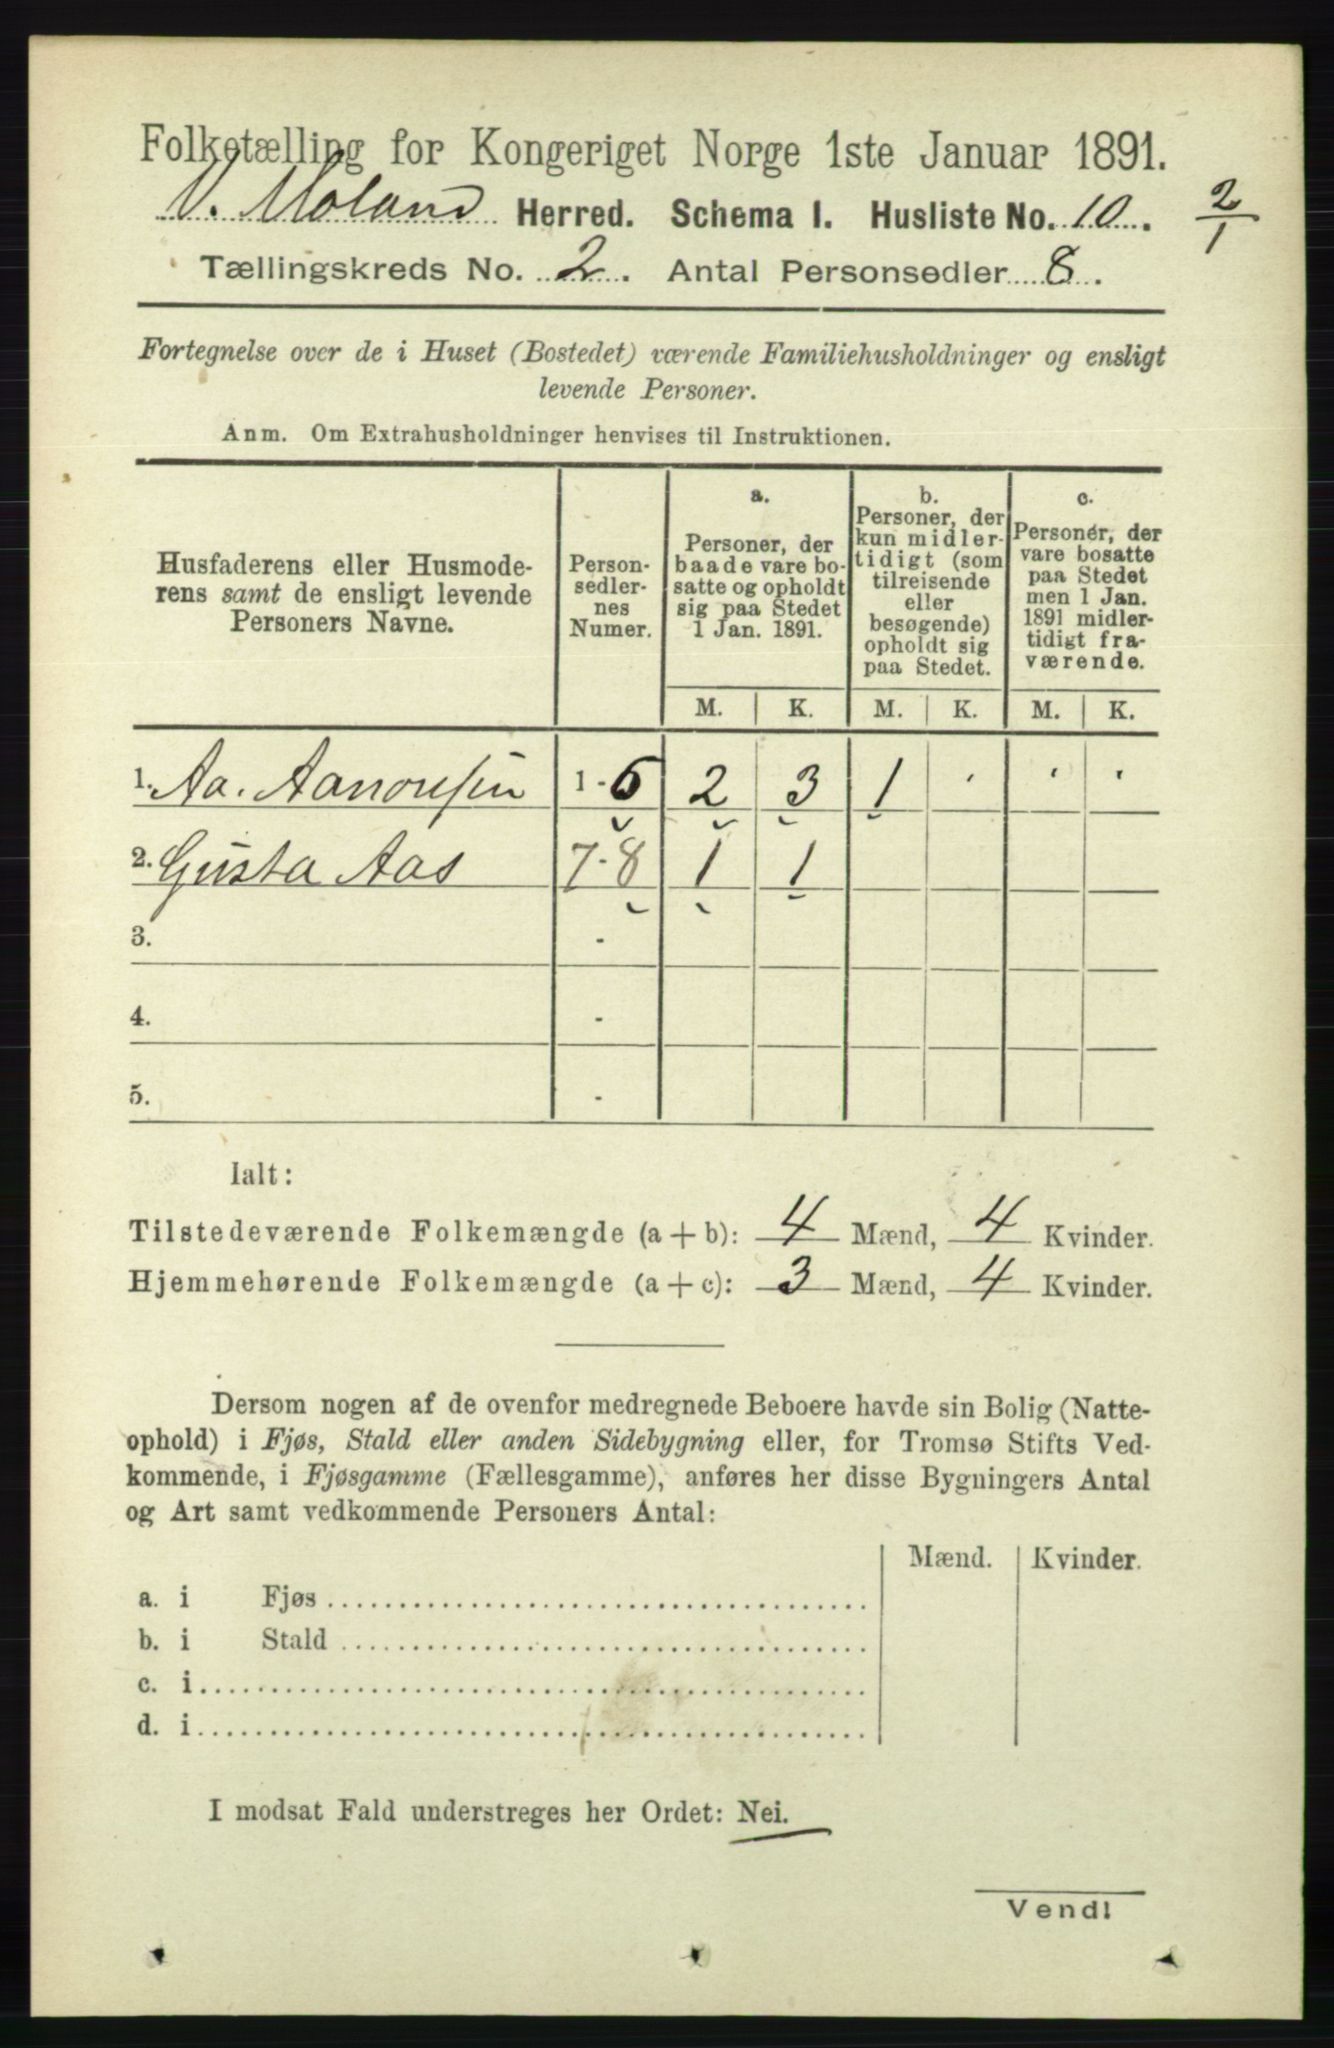 Folketælling for Kongeriget Norge 1ste Januar 1891.
V. Moland Herred. Schema I. Husliste No. 10. 2/1
Tællingskreds No. 2. Antal Personsedler 8.
Fortegnelse over de i Huset (Bostedet) værende Familiehusholdninger og ensligt
levende Personer.
Anm. Om Extrahusholdninger henvises til Instruktionen.
Husfaderens eller Husmode-
rens samt de ensligt levende
Personers Navne.
Person-
sedler-
nes
Numer.
a.
Personer, der
baade vare bo-
satte og opholdt
sig paa Stedet
1 Jan. 1891.
b.
Personer, der
kun midler-
tidigt (som
tilreisende
eller
besøgende)
opholdt sig
paa Stedet.
c.
Personer, der
vare bosatte
paa Stedet
men 1 Jan.
1891 midler-
tidigt fra-
værende.
M. K. M. K. M. K.
1. Aa. Aanonsen 1-6 2 3 1 . . .
2. Gusta Aas 7-8 1 1
3. -
4. -
5. -
Ialt:
Tilstedeværende Folkemængde (a + b): 4 Mænd, 4 Kvinder.
Hjemmehørende Folkemængde (a + c): 3 Mænd, 4 Kvinder.
Dersom nogen af de ovenfor medregnede Beboere havde sin Bolig (Natte-
ophold) i Fjøs, Stald eller anden Sidebygning eller, for Tromsø Stifts Ved-
kommende, i Fjøsgamme (Fællesgamme), anføres her disse Bygningers Antal
og Art samt vedkommende Personers Antal:
Mænd. Kvinder.
a. i Fjøs
b. i Stald
c. i
d. i
I modsat Fald understreges her Ordet: Nei.
Vend!